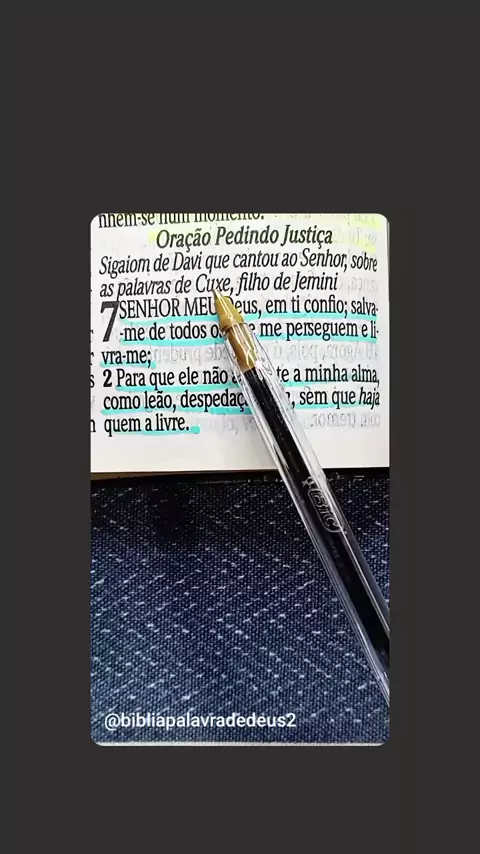 nhem-se num momento.
Oração Pedindo Justiça
Sigaiom de Davi que cantou ao Senhor, sobre
as palavras de Cuxe, filho de Jemini
7 SENHOR MEU Deus, em ti confio; salva-
-me de todos os me perseguem e li-
vra-me;
2 Para que ele não a minha alma,
como leão, sem que haja
quem a livre.
BIC
@bibliapalavradedeus2